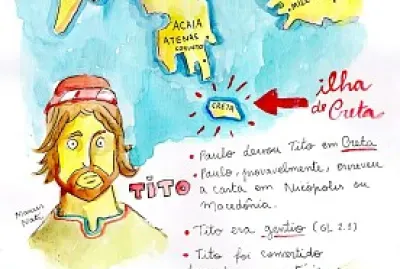 ACAIA
ATENAS
CORINTO
CRETA
ilha
de Creta
• Paulo deixou Tito em Creta
• Paulo, provavelmente, escreveu
a carta em Nicópolis ou
Macedônia.
TITO
• Tito era gentio (GL 2.3)
• Tito foi convertido